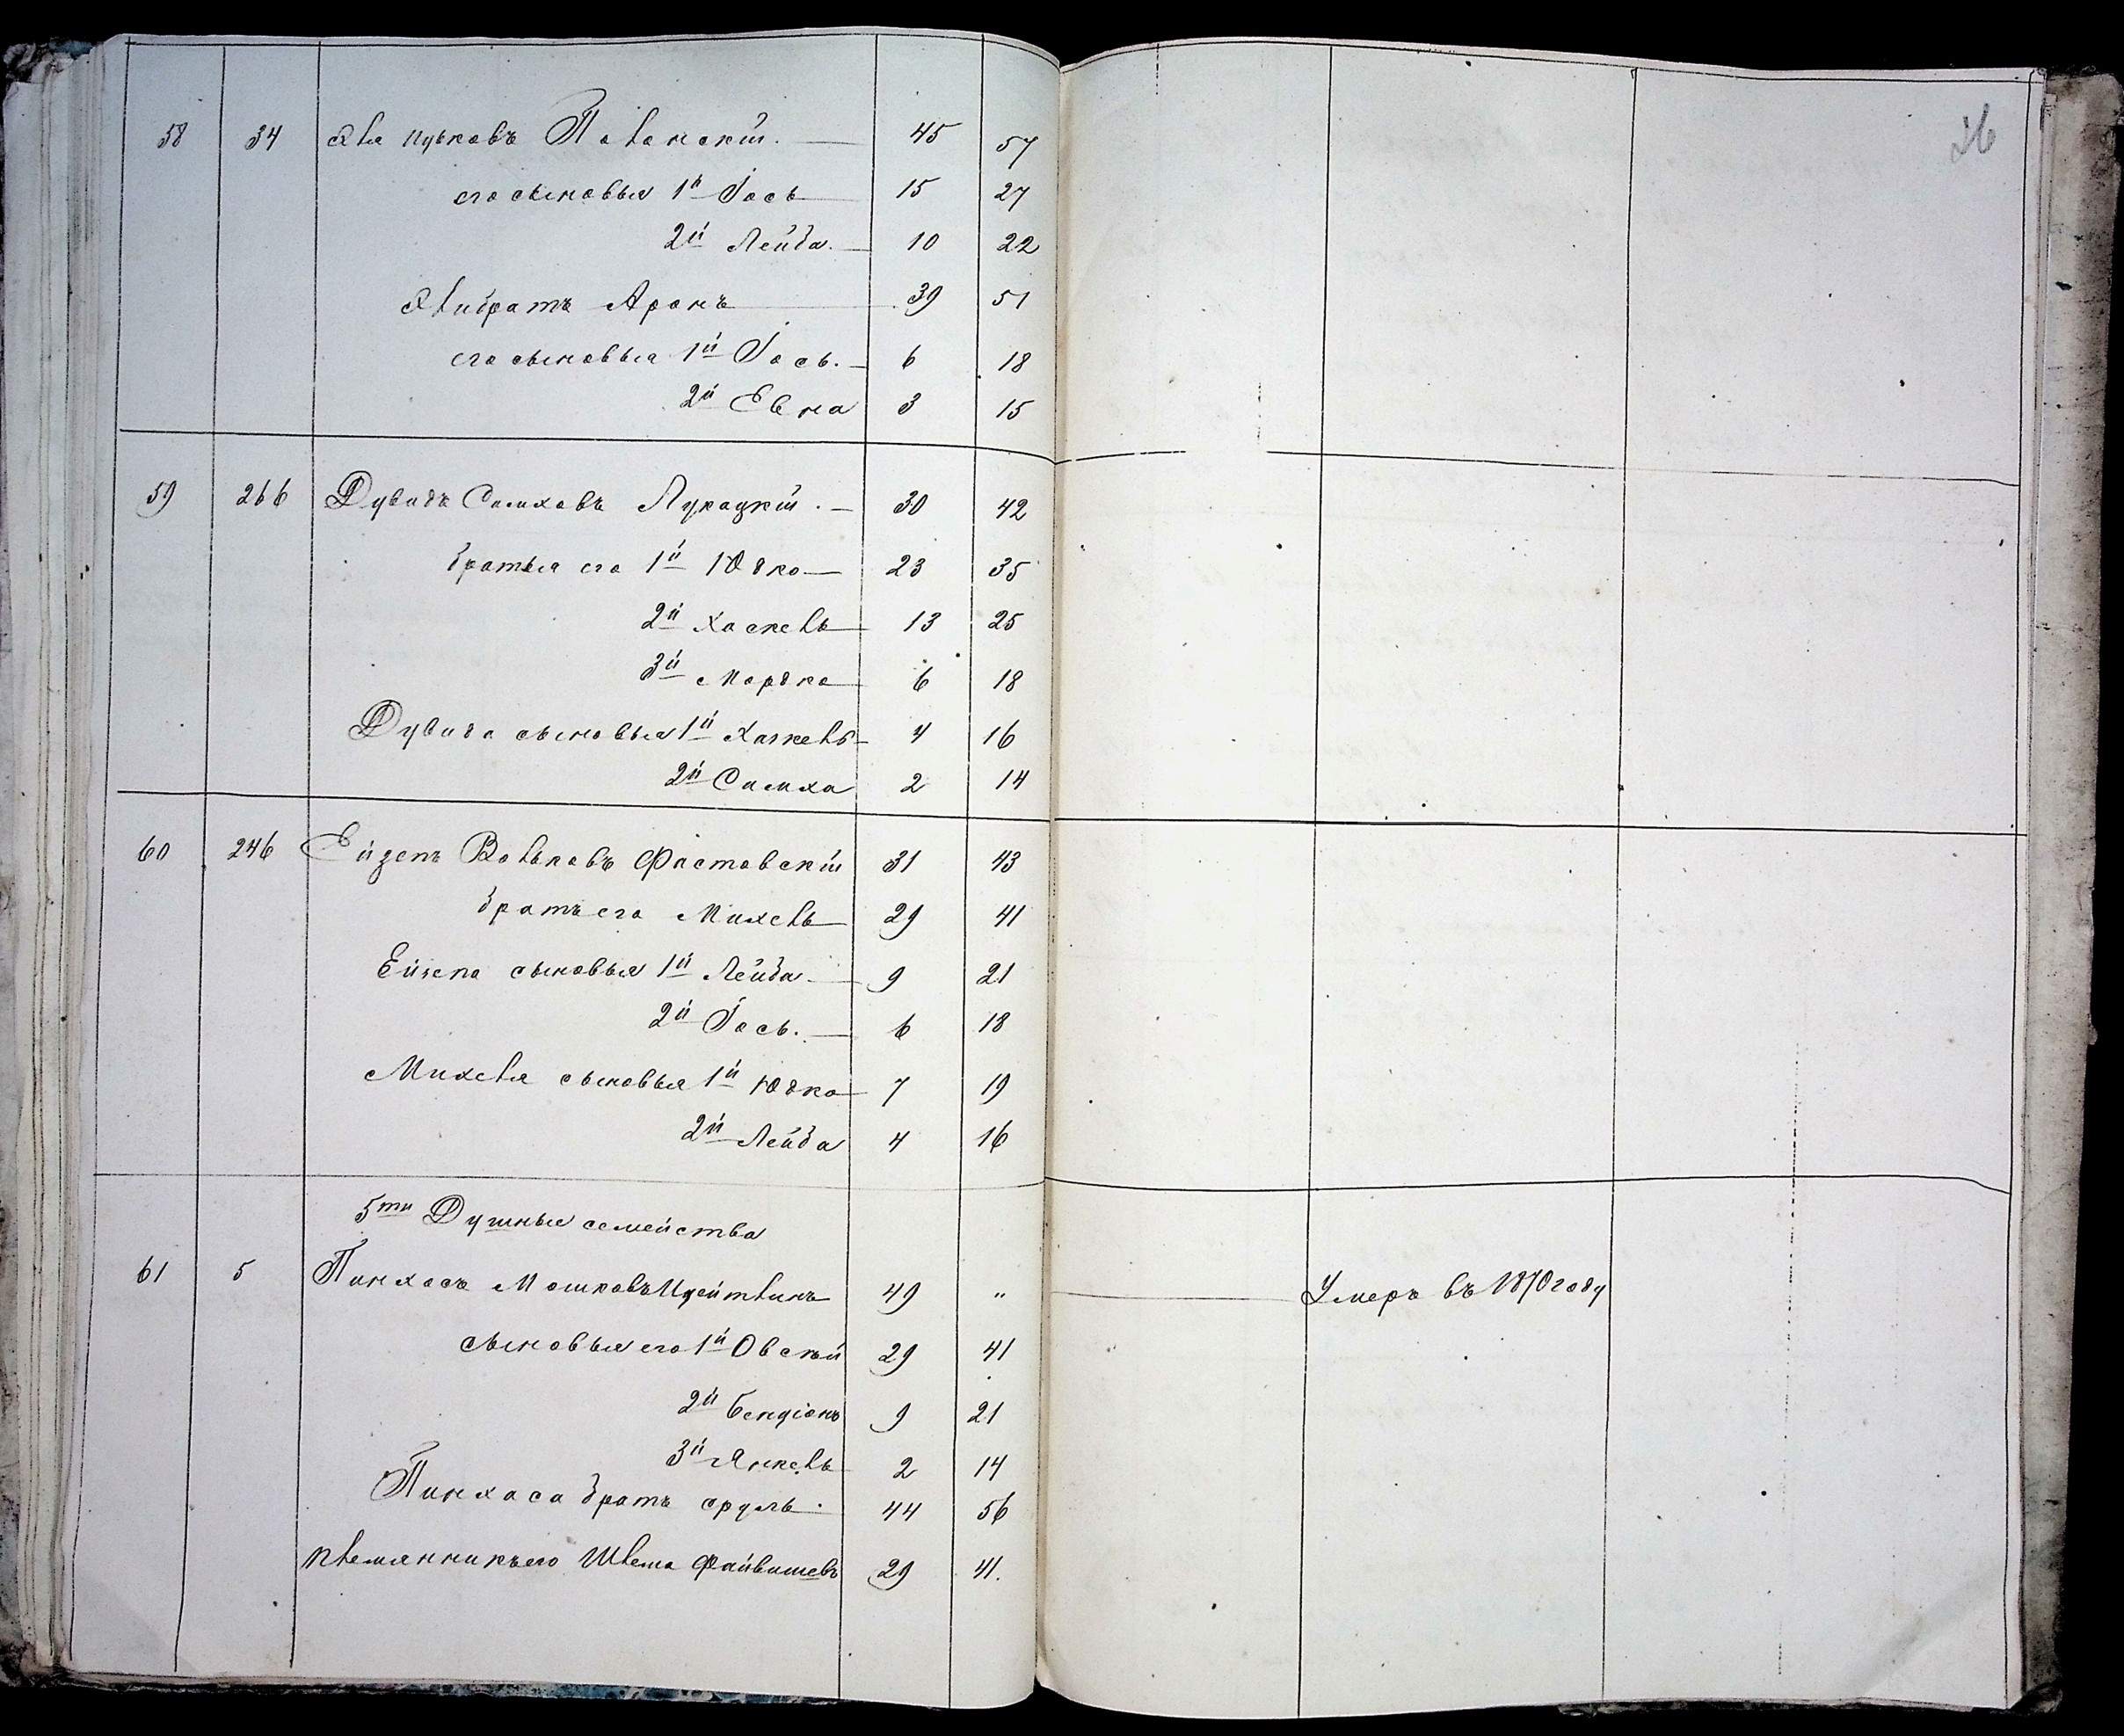 26
58 34 Эля Ицковъ Полонскій. 45 57
его сыновья 1й Іось 15 27
2й Лейба. 10 22
Эли братъ Аронъ 39 51
его сыновья 1й Іось. 6 18
2й Евна 3 15
59 266 Дувидъ Симховъ Лукацкій. 30 42
братья его 1й Юдко 23 35
2й Хаскель 13 25
3й Мордко 6 18
Дувида сыновья 1й Хаскель 4 16
2й Симха 2 14
60 246 Ейзепъ Вольковъ Фастовскій 31 43
братъ его Михель 29 41
Ейзепа сыновья 1й Лейба 9 21
2й Іось. 6 18
Михеля сыновья 1й Юдко 7 19
2й Лейба 4 16
5ти Душныя семейства
61 5 Пинхасъ Мошковъ Цейтлинъ 49 " Умеръ въ 1870 году
сыновья его 1й Овсѣй 29 41
2й Бенціонъ 9 21
3й Янкель 2 14
Пинхаса братъ Сруль. 44 56
племянникъ его Шлема Файвишевъ 29 41.